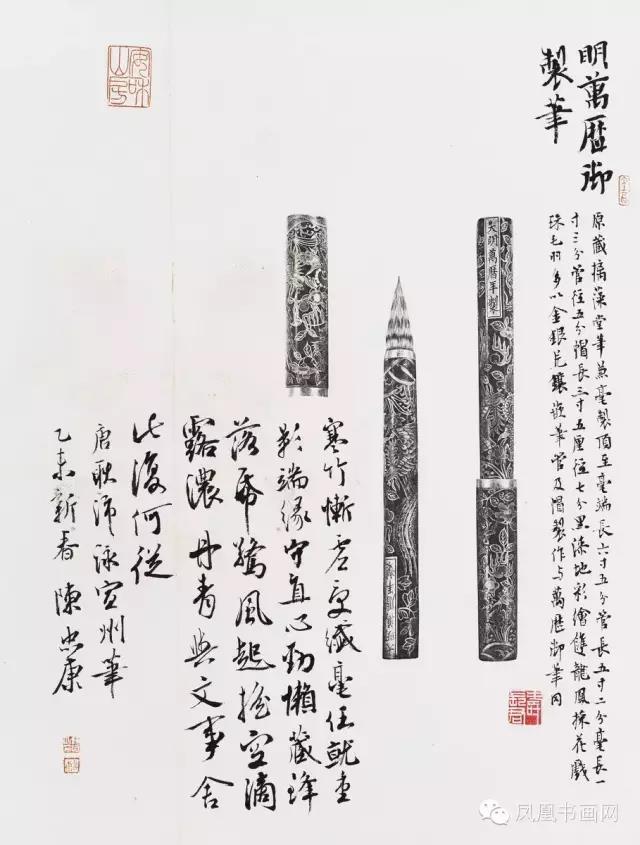 明萬曆御
製筆
原藏摛藻堂筆兼毫製頂至毫端長六寸五分管長五寸二分毫長一
寸三分管径五分帽長三寸五厘径七分黑漆地彩繪雙龍鳳採花戲
珠毛羽多以金銀片鑲嵌筆管及帽製作与萬曆御筆同
大明萬曆年製
寒竹慚虛受纖毫任重
影端緣守直心勁懶藏鋒
落紙驚風起搖空滴
露濃丹青與文事舍
此復何從
唐耿湋詠宣州筆
乙未新春陳忠康
凤凰书画网